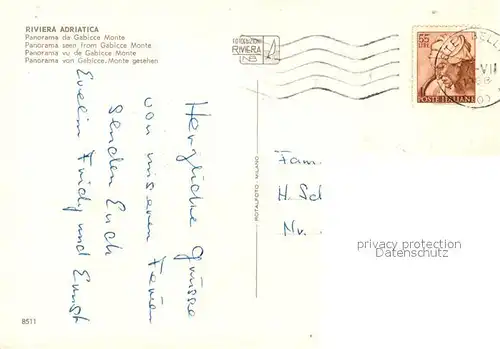 RIVIERA ADRIATICA
Panorama da Gabicce Monte
Panorama seen from Gabicce Monte
Panorama vu de Gabicce Monte
Panorama von Gabicce Monte gesehen
FOTOEDIZIONI
RIVIERA
NB
55
LIRE
POSTE ITALIANE
-VII
Herzliche Grüsse
von unseren Ferien
senden Euch
Evelin Fridy und Ernst
ROTALFOTO - MILANO
Fam.
H. Sch
Nr.
privacy protection
Datenschutz
8511